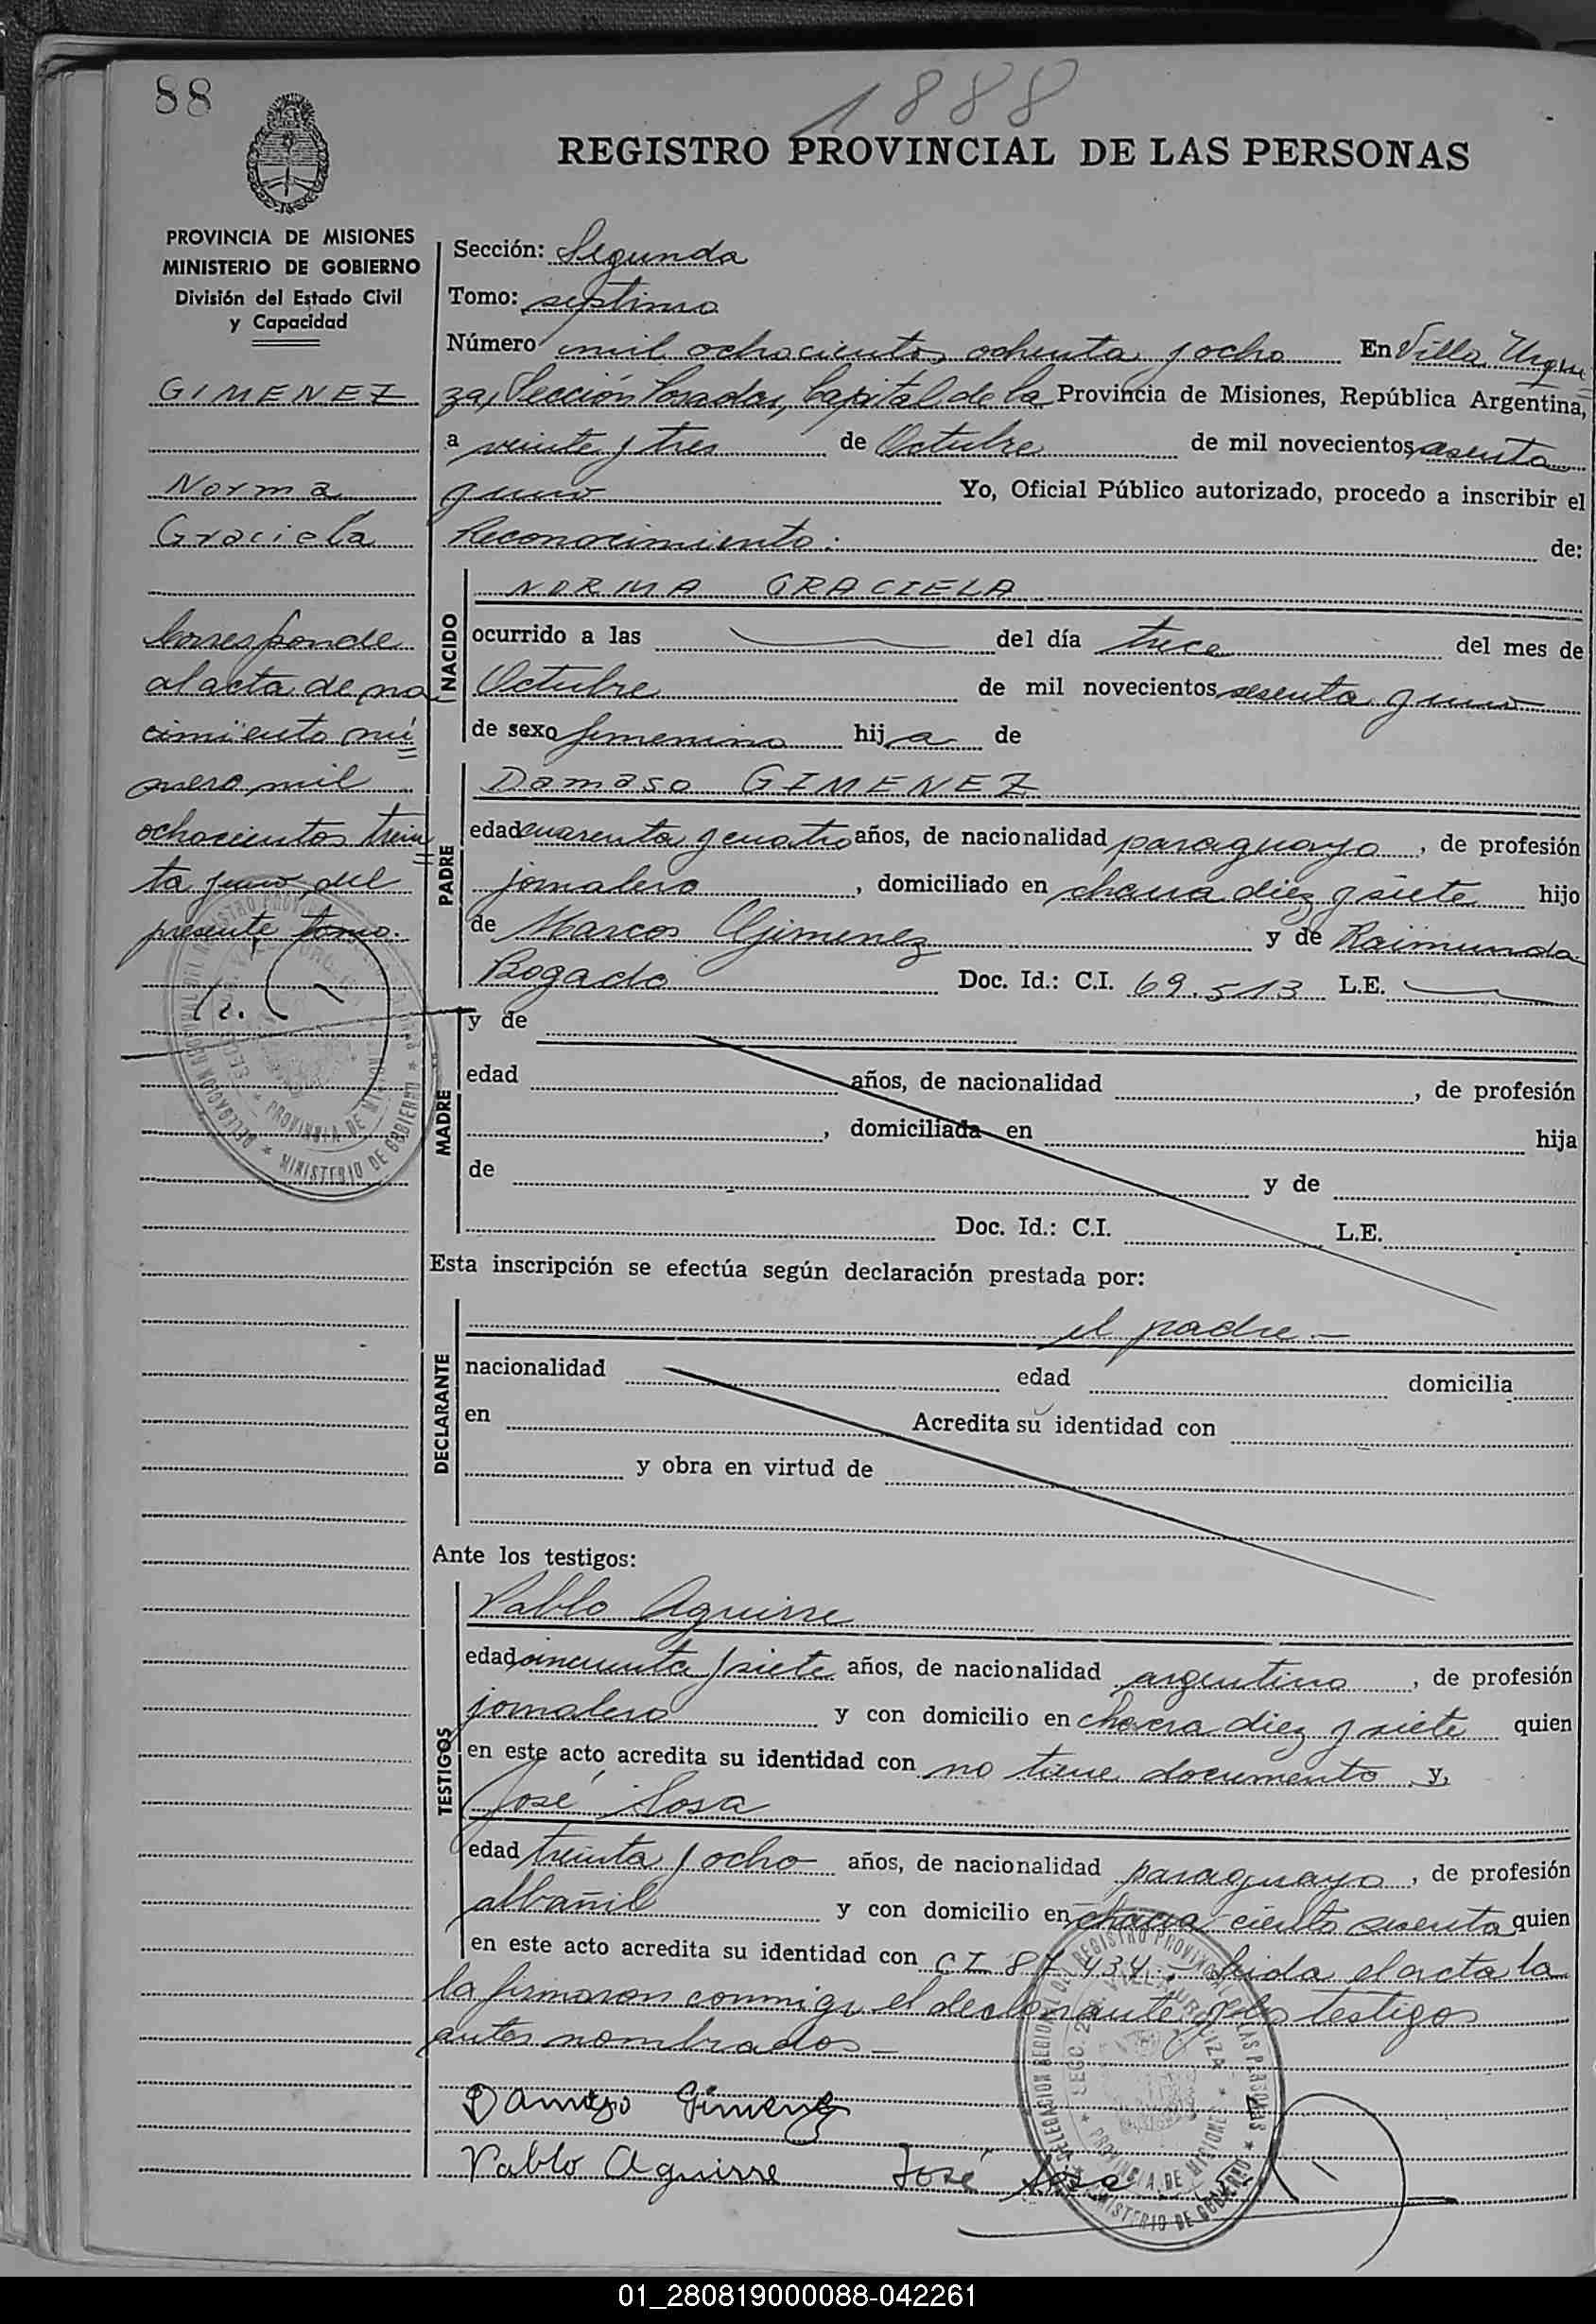 88
1888
REGISTRO PROVINCIAL DE LAS PERSONAS
PROVINCIA DE MISIONES
MINISTERIO DE GOBIERNO
División del Estado Civil
y Capacidad
GIMENEZ
Norma
Graciela
Corresponde
al acta de na
cimiento nú
mero mil
ochocientos trein
ta y uno del
presente tomo.
Sección: Segunda
Tomo: septimo
Número mil ochocientos ochenta y ocho En Villa Urqui
za, Sección Posadas, Capital de la Provincia de Misiones, República Argentina,
a veinte y tres de Octubre de mil novecientos sesenta
y uno Yo, Oficial Público autorizado, procedo a inscribir el
Reconocimiento: de:
NACIDO
NORMA GRACIELA
ocurrido a las del día trece del mes de
Octubre de mil novecientos sesenta y uno
de sexo femenino hija de
PADRE
Damaso GIMENEZ
edad cuarenta y cuatro años, de nacionalidad paraguayo, de profesión
jornalero, domiciliado en chacra diez y siete hijo
de Marcos Gimenez y de Raimunda
Bogado Doc. Id.: C.I. 69.513 L.E.
MADRE
y de
edad años, de nacionalidad , de profesión
, domiciliada en hija
de y de
Doc. Id.: C.I. L.E.
Esta inscripción se efectúa según declaración prestada por:
DECLARANTE
el padre -
nacionalidad edad domicilia
en Acredita su identidad con
y obra en virtud de
Ante los testigos:
TESTIGOS
Pablo Aguirre
edad cincuenta y siete años, de nacionalidad argentino, de profesión
jornalero y con domicilio en chacra diez y siete quien
en este acto acredita su identidad con no tiene documento y,
José Sosa
edad treinta y ocho años, de nacionalidad paraguayo, de profesión
albañil y con domicilio en chacra ciento sesenta quien
en este acto acredita su identidad con CI 87.434. Leida el acta la
la firmaron conmigo el declarante y los testigos
antes nombrados -
Damaso Gimenez
Pablo Aguirre José Sosa
DELEGACION REGIONAL DEL REGISTRO PROVINCIAL DE LAS PERSONAS
PROVINCIA DE MISIONES
MINISTERIO DE GOBIERNO
01_280819000088-042261